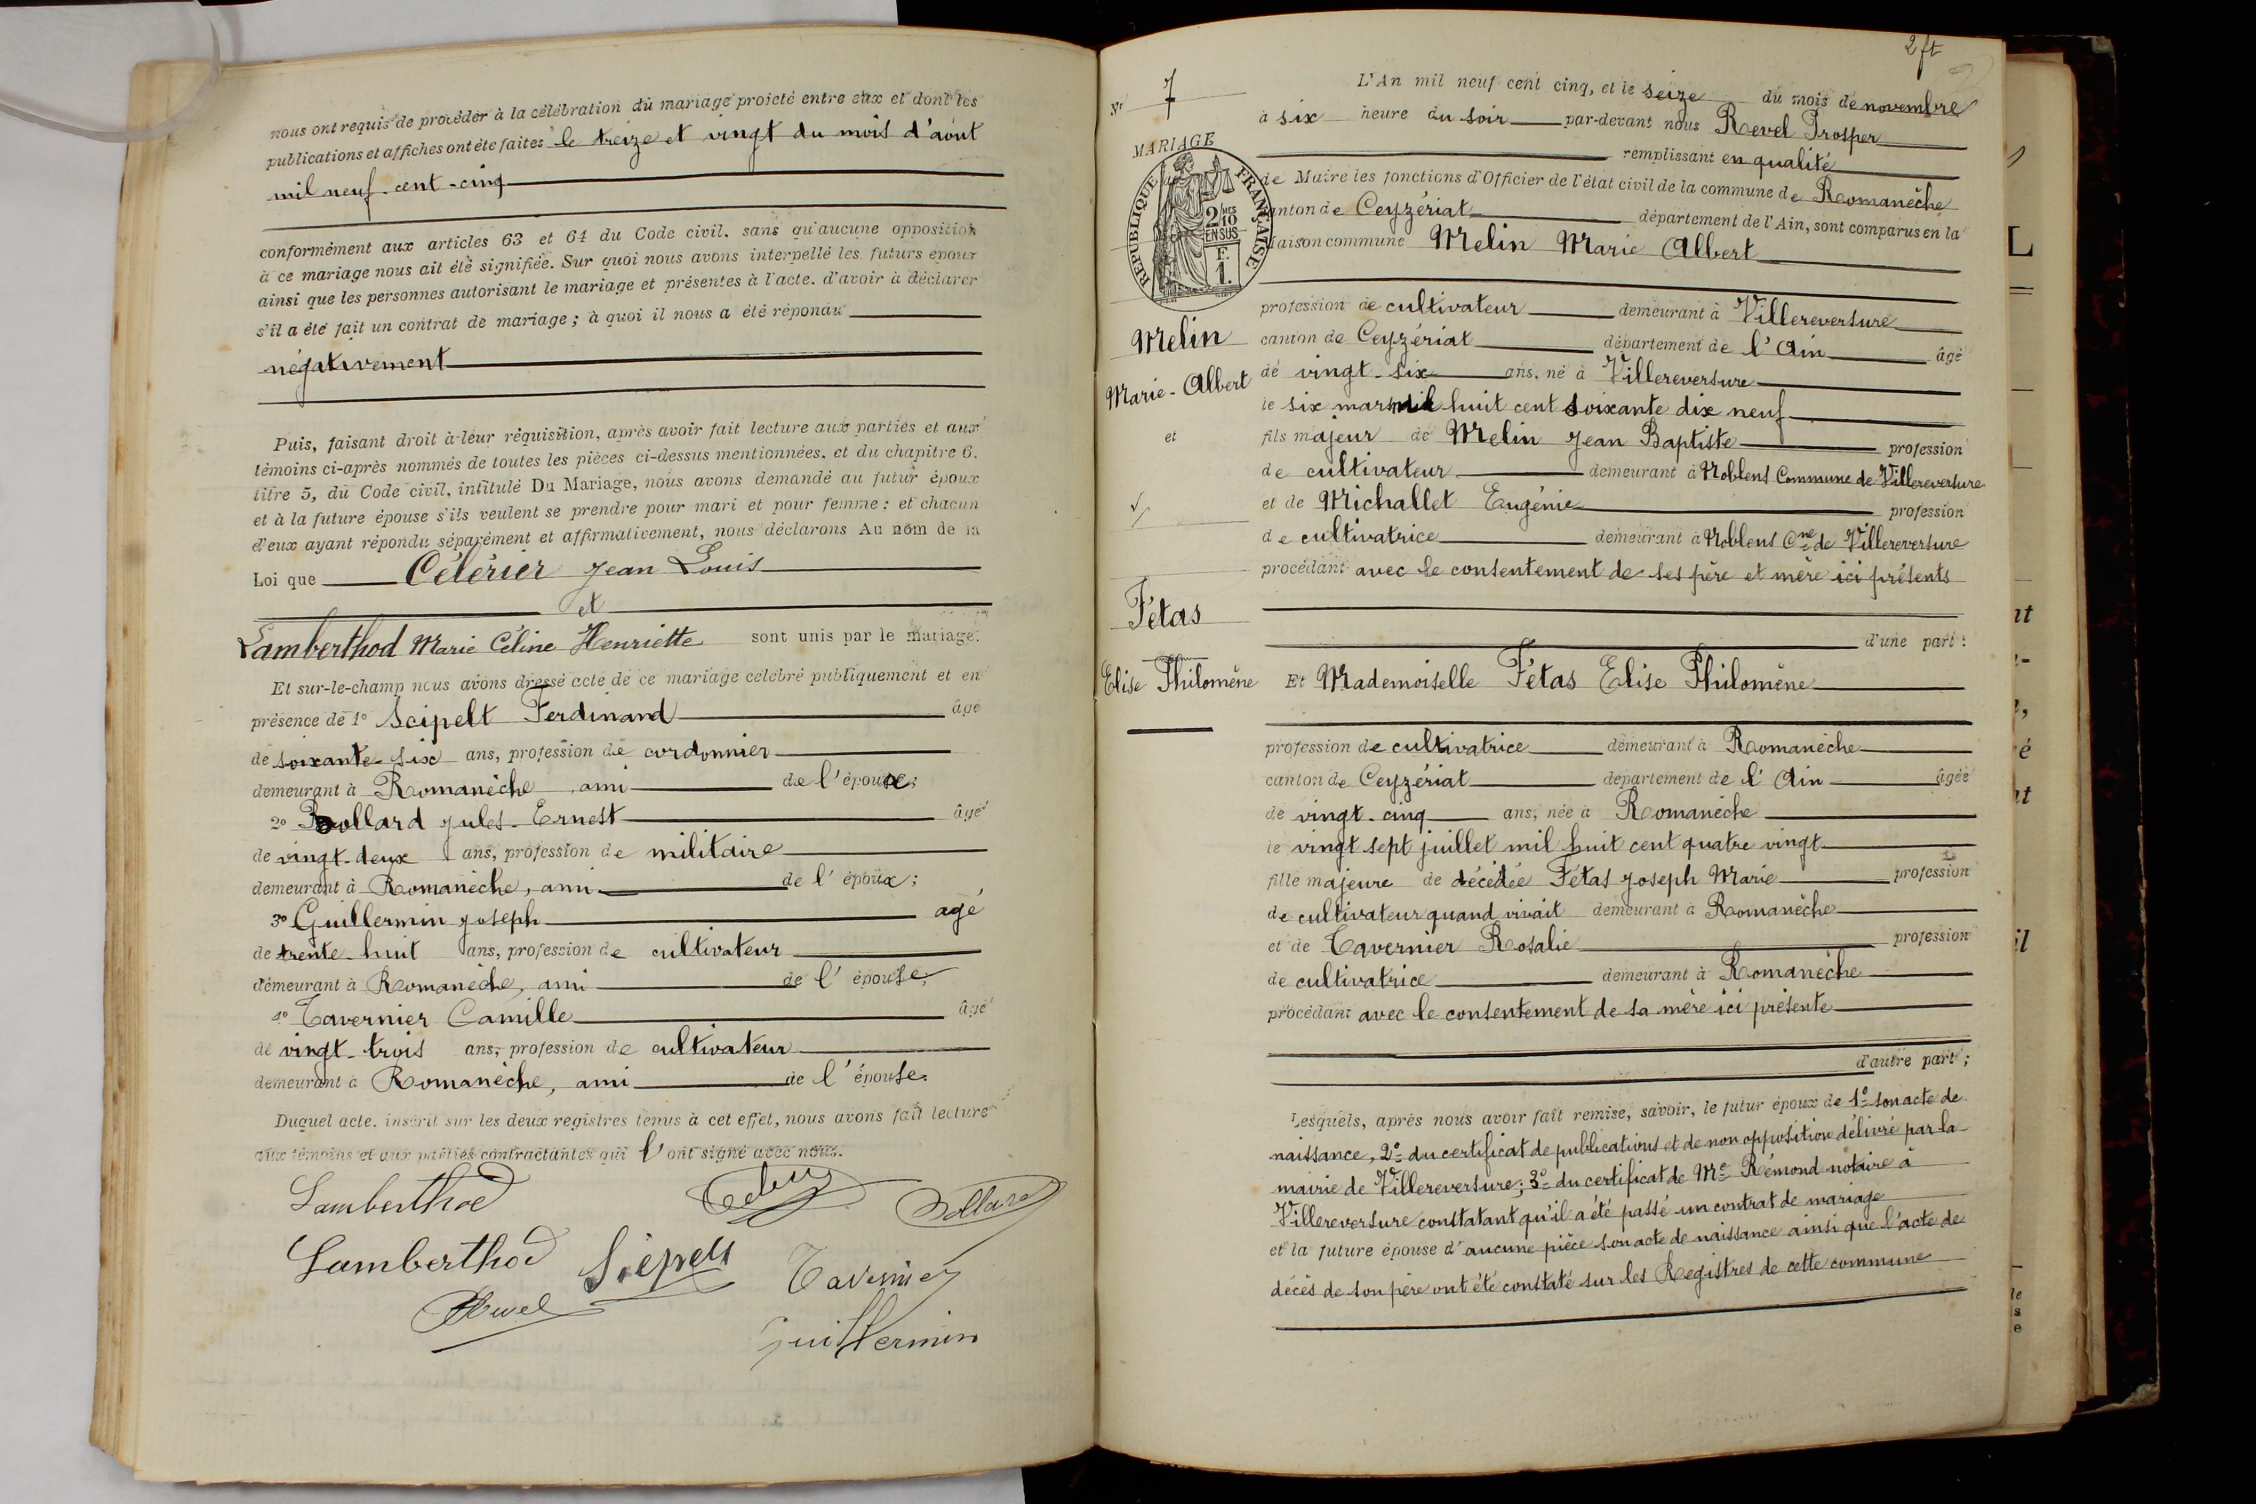 nous ont requis de procéder à la célébration du mariage projeté entre eux et dont les
publications et affiches ont été faites le treize et vingt du mois d'août
mil neuf cent-cinq
conformément aux articles 63 et 64 du Code civil, sans qu'aucune opposition
à ce mariage nous ait été signifiée. Sur quoi nous avons interpellé les futurs époux
ainsi que les personnes autorisant le mariage et présentes à l'acte, d'avoir à déclarer
s'il a été fait un contrat de mariage ; à quoi il nous a été répondu
négativement
Puis, faisant droit à leur réquisition, après avoir fait lecture aux parties et aux
témoins ci-après nommés de toutes les pièces ci-dessus mentionnées, et du chapitre 6,
titre 5, du Code civil, intitulé Du Mariage, nous avons demandé au futur époux
et à la future épouse s'ils veulent se prendre pour mari et pour femme : et chacun
d'eux ayant répondu séparément et affirmativement, nous déclarons Au nom de la
Loi que Célérier Jean Louis
et
Lamberthod Marie Céline Henriette sont unis par le mariage.
Et sur-le-champ nous avons dressé acte de ce mariage célébré publiquement et en
présence de 1° Scipelt Ferdinand âgé
de soixante-six ans, profession de cordonnier
demeurant à Romanèche, ami de l'épouse;
2° Bollard Jules-Ernest âgé
de vingt-deux ans, profession de militaire
demeurant à Romanèche, ami de l'époux;
3° Guillermin Joseph agé
de trente-huit ans, profession de cultivateur
demeurant à Romanèche, ami de l'épouse;
4° Tavernier Camille âgé
de vingt-trois ans, profession de cultivateur
demeurant à Romanèche, ami de l'épouse.
Duquel acte, inscrit sur les deux registres tenus à cet effet, nous avons fait lecture
aux témoins et aux parties contractantes qui l'ont signé avec nous.
Lamberthod
Bollard
Lamberthod Siepelt Tavernier
Revel
Guillermin
2 ft
N° 7
MARIAGE
REPUBLIQUE FRANÇAISE
2/10 EN SUS
F. 1.
Melin
Marie-Albert
et
Fétas
Elise Philomène
L'An mil neuf cent cinq, et le seize du mois de novembre
à six heure du soir par-devant nous Revel Prosper
remplissant en qualité
de Maire les fonctions d'Officier de l'état civil de la commune de Romanèche
canton de Ceyzériat département de l'Ain, sont comparus en la
maison commune Melin Marie Albert
profession de cultivateur demeurant à Villereversure
canton de Ceyzériat département de l'Ain âgé
de vingt-six ans, né à Villereversure
le six mars mil huit cent soixante dix neuf
fils majeur de Melin Jean Baptiste profession
de cultivateur demeurant à Noblens Commune de Villereversure
et de Michallet Eugénie profession
de cultivatrice demeurant à Noblens Cne de Villereversure
procédant avec le consentement de ses père et mère ici présents
d'une part :
Et Mademoiselle Fétas Elise Philomène
profession de cultivatrice demeurant à Romanèche
canton de Ceyzériat département de l'Ain âgée
de vingt-cinq ans, née à Romanèche
le vingt sept juillet mil huit cent quatre vingt
fille majeure de décédée Fétas Joseph Marie profession
de cultivateur quand vivait demeurant à Romanèche
et de Tavernier Rosalie profession
de cultivatrice demeurant à Romanèche
procédant avec le consentement de sa mère ici présente
d'autre part ;
Lesquels, après nous avoir fait remise, savoir, le futur époux de 1° son acte de
naissance, 2° du certificat de publications et de non opposition délivré par la
mairie de Villereversure; 3° du certificat de Me Rémond notaire à
Villereversure constatant qu'il a été passé un contrat de mariage
et la future épouse d'aucune pièce son acte de naissance ainsi que l'acte de
décès de son père ont été constaté sur les Registres de cette commune